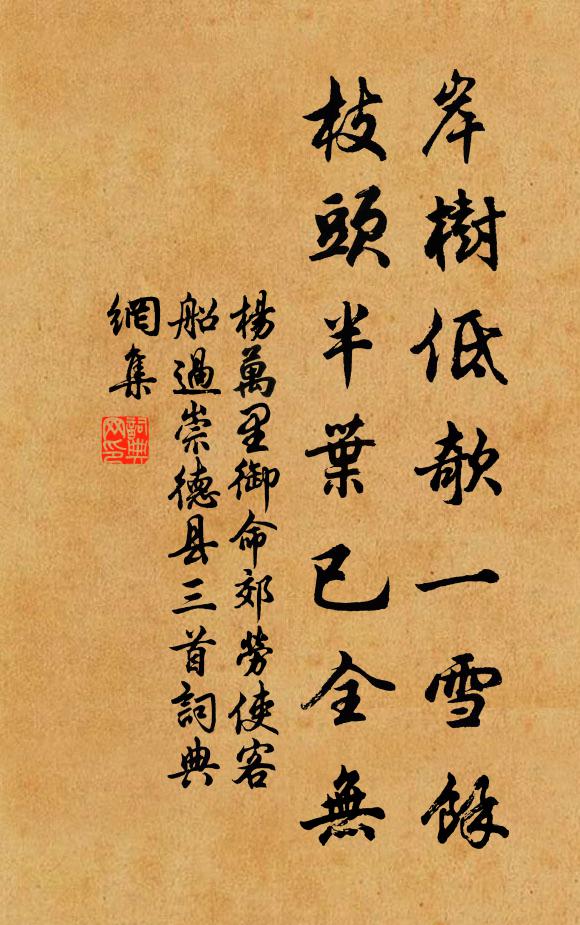 岸樹低欹一雪餘
枝頭半葉已全無
楊萬里御命郊勞使客
船過崇德县三首詞典
網集
詞典
网印